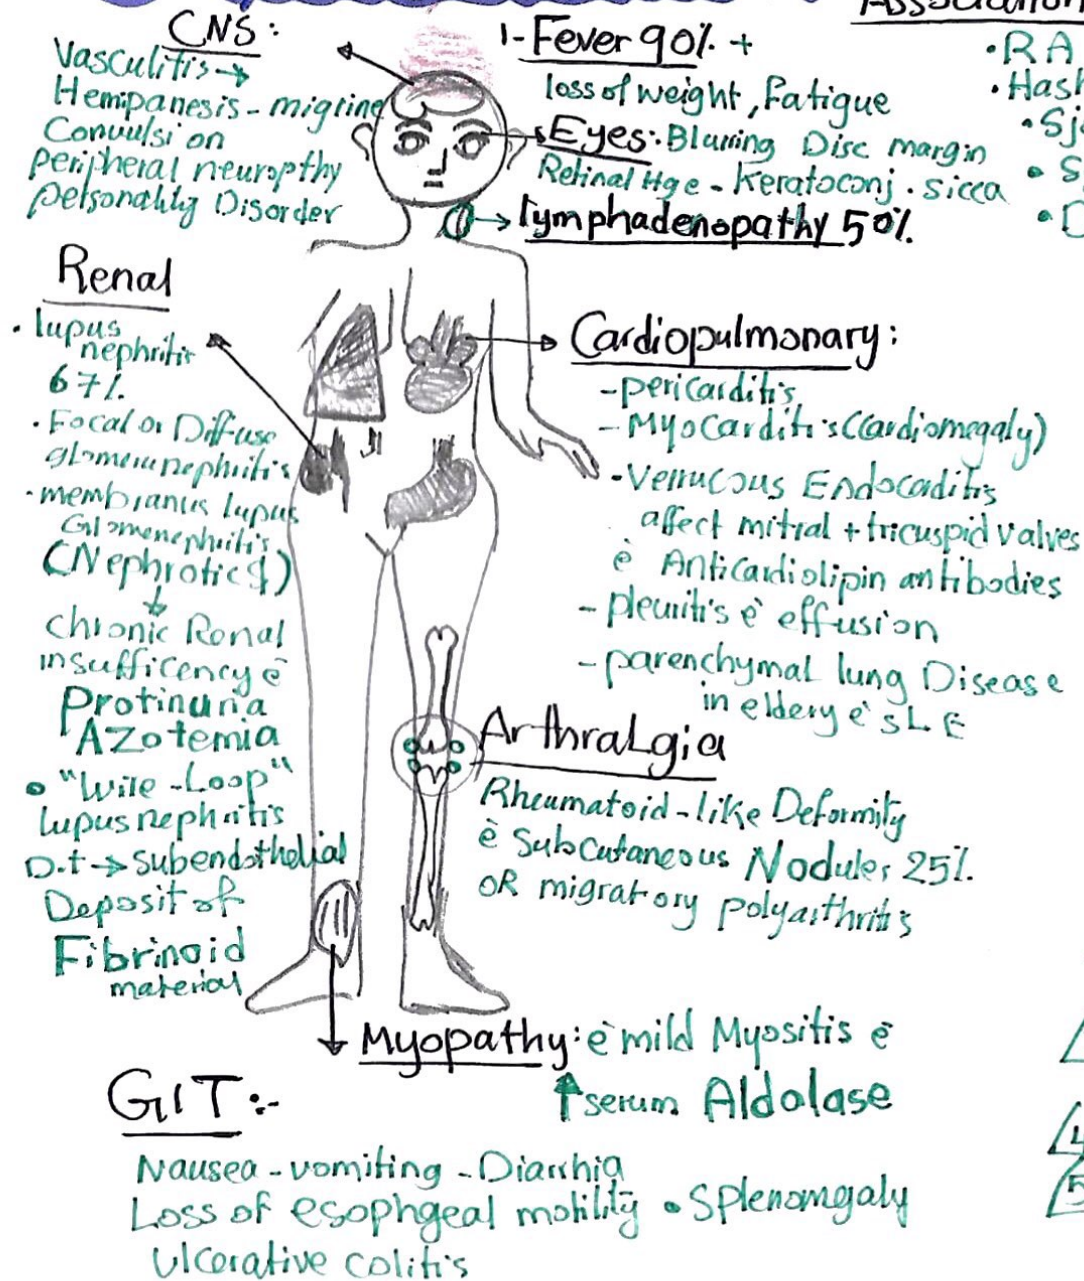 CNS:
Vasculitis →
Hemipanesis - migrine
Convulsion
peripheral neuropthy
personality Disorder
1- Fever 90% +
loss of weight, Fatigue
Eyes: Blurring Disc margin
Retinal Hge - Keratoconj. sicca
→ lymphadenopathy 50%
Association
• RA
• Hash
• Sj
• S
Renal
• lupus
nephritis
67%
• Focal or Diffuse
glomerunephritis
• membranus lupus
Glomenephritis
(Nephrotic $)
↓
chronic Renal
insufficency ē
Protinuria
Azotemia
• "Wire-Loop"
lupus nephritis
D.t → subendothelial
Deposit of
Fibrinoid
material
Cardiopulmonary:
- pericarditis
- Myocarditis (Cardiomegaly)
- Verrucous Endocaditis
affect mitral + tricuspid valves
ē Anticardiolipin antibodies
- pleuritis ē effusion
- parenchymal lung Disease
in eldery ē SLE
Arthralgia
Rheumatoid-like Deformity
ē Subcutaneous Nodules 25%
OR migratory polyarthritis
Myopathy: ē mild Myositis ē
↑ serum Aldolase
GIT:-
Nausea - vomiting - Diarrhia
Loss of esophgeal motility • Splenomgaly
Ulcerative colitis
4
5